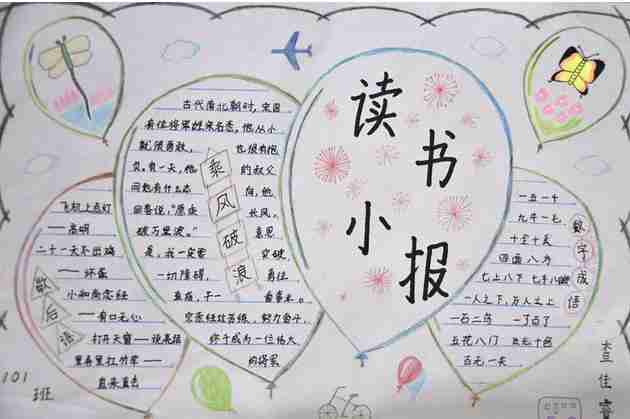 读
书
小
报
古代南北朝时,宋国
有位将军姓宗名悫,他从小
就很勇敢,也很有抱
负。有一天,他的叔父
问他有什么志向,他
回答说:"愿乘长风,
破万里浪。"意思
是,我一定要突破
一切障碍,勇往
直前,干一事业。
宗悫经过苦练,努力奋斗,
终于成为一位伟大
的将军
乘风破浪
飞机上点灯
——高明
二十一天不出鸡
——坏蛋
小和尚念经
——有口无心
打开天窗——说亮话
里弄里扛竹竿——
直来直去
歇后语
一五一十
九牛一毛
十全十美
四面八方
七上八下 七手八脚
一人之下,万人之上
一石二鸟 一了百了
五花八门 五光十色
百无一失
数字成语
101
班
查佳睿